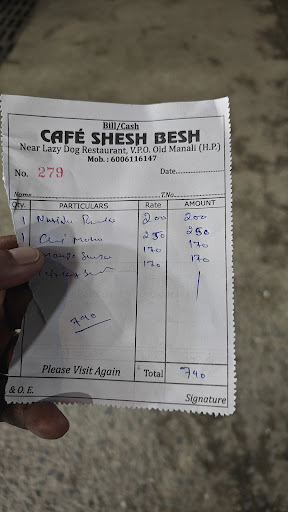 Bill/Cash
CAFÉ SHESH BESH
Near Lazy Dog Restaurant, V.P.O. Old Manali (H.P.)
Mob. : 6006116147
No. 279 Date
Name T.No.
Qty. PARTICULARS Rate AMOUNT
1 200 200
1 250 250
170 170
170 170
790
Please Visit Again Total 790
& O. E. Signature